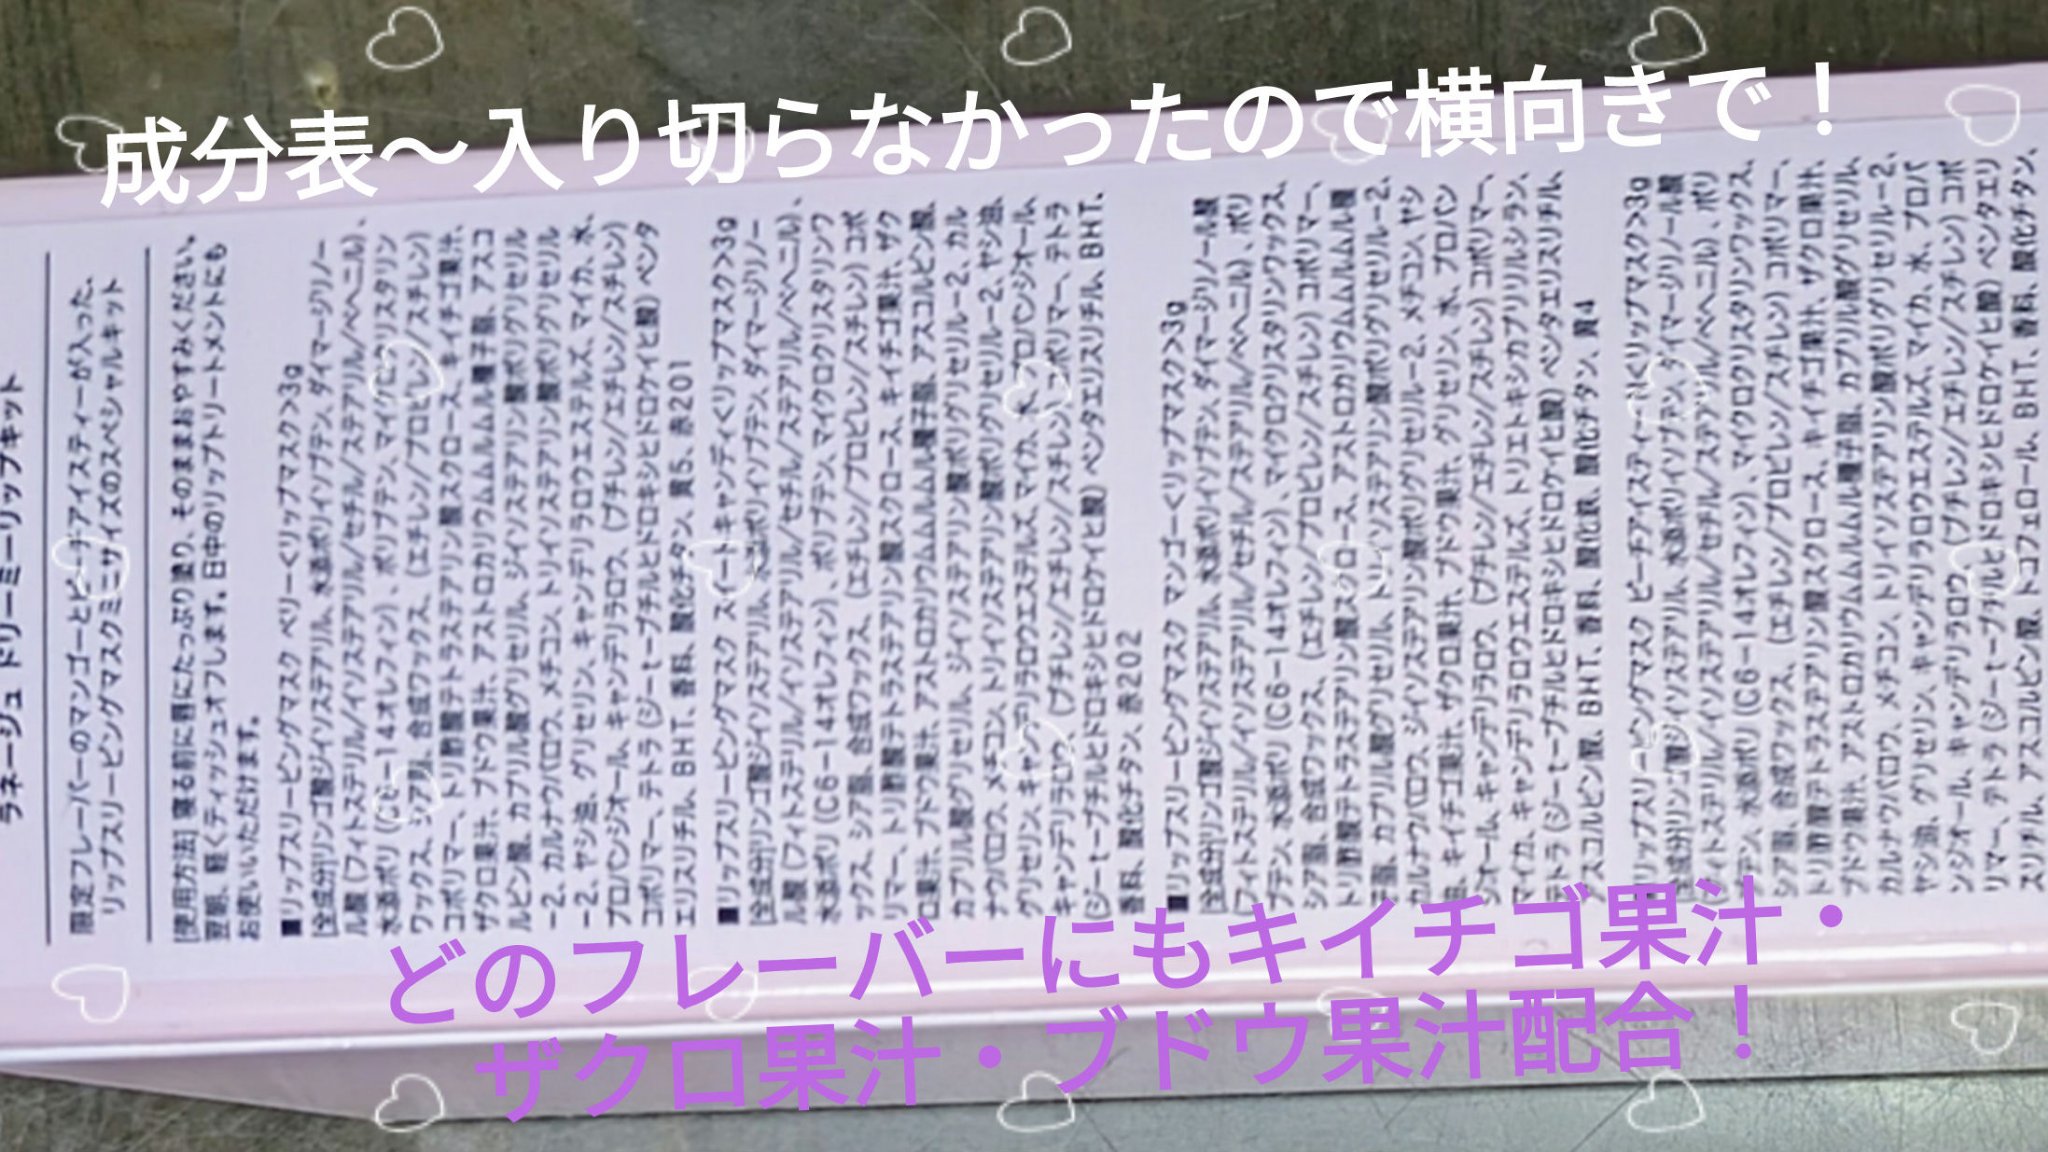 成分表～入り切らなかったので横向きで！
ラネージュ ドリーミーリップキット
限定フレーバーのマンゴーとピーチアイスティーが入った、
リップスリーピングマスクミニサイズのスペシャルキット
[使用方法] 寝る前に唇にたっぷり塗り、そのままおやすみください。
翌朝、軽くティッシュオフします。日中のリップトリートメントにも
お使いいただけます。
■リップスリーピングマスク ベリー<リップマスク>3g
[全成分]リンゴ酸ジイソステアリル、水添ポリイソブテン、ダイマージリノー
ル酸 (フィトステリル/イソステアリル/セチル/ステアリル/ベヘニル)、
水添ポリ (C6-14オレフィン)、ポリブテン、マイクロクリスタリン
ワックス、シア脂、合成ワックス、(エチレン/プロピレン/スチレン)
コポリマー、トリ酢酸テトラステアリン酸スクロース、キイチゴ果汁、
ザクロ果汁、ブドウ果汁、アストロカリウムムルムル種子脂、アスコ
ルビン酸、カプリル酸グリセリル、ジイソステアリン酸ポリグリセリル
-2、カルナウバロウ、メチコン、トリイソステアリン酸ポリグリセリル
-2、ヤシ油、グリセリン、キャンデリラロウエステルズ、マイカ、水、
プロパンジオール、キャンデリラロウ、(ブチレン/エチレン/スチレン)
コポリマー、テトラ (ジ-t-ブチルヒドロキシヒドロケイヒ酸) ペンタ
エリスリチル、BHT、香料、酸化チタン、黄5、赤201
■リップスリーピングマスク スイートキャンディ<リップマスク>3g
[全成分]リンゴ酸ジイソステアリル、水添ポリイソブテン、ダイマージリノー
ル酸 (フィトステリル/イソステアリル/セチル/ステアリル/ベヘニル)、
水添ポリ (C6-14オレフィン)、ポリブテン、マイクロクリスタリンワ
ックス、シア脂、合成ワックス、(エチレン/プロピレン/スチレン) コポ
リマー、トリ酢酸テトラステアリン酸スクロース、キイチゴ果汁、ザク
ロ果汁、ブドウ果汁、アストロカリウムムルムル種子脂、アスコルビン酸、
カプリル酸グリセリル、ジイソステアリン酸ポリグリセリル-2、カル
ナウバロウ、メチコン、トリイソステアリン酸ポリグリセリル-2、ヤシ油、
グリセリン、キャンデリラロウエステルズ、マイカ、水、プロパンジオール、
キャンデリラロウ、(ブチレン/エチレン/スチレン) コポリマー、テトラ
(ジ-t-ブチルヒドロキシヒドロケイヒ酸) ペンタエリスリチル、BHT、
香料、酸化チタン、赤202
■リップスリーピングマスク マンゴー<リップマスク>3g
[全成分]リンゴ酸ジイソステアリル、水添ポリイソブテン、ダイマージリノール酸
(フィトステリル/イソステアリル/セチル/ステアリル/ベヘニル)、ポリ
ブテン、水添ポリ (C6-14オレフィン)、マイクロクリスタリンワックス、
シア脂、合成ワックス、(エチレン/プロピレン/スチレン) コポリマー、
トリ酢酸テトラステアリン酸スクロース、アストロカリウムムルムル種
子脂、カプリル酸グリセリル、トリイソステアリン酸ポリグリセリル-2、
カルナウバロウ、ジイソステアリン酸ポリグリセリル-2、メチコン、ヤシ
油、キイチゴ果汁、ザクロ果汁、ブドウ果汁、グリセリン、水、プロパン
ジオール、キャンデリラロウ、(ブチレン/エチレン/スチレン) コポリマー、
マイカ、キャンデリラロウエステルズ、トリエトキシカプリリルシラン、
テトラ (ジ-t-ブチルヒドロキシヒドロケイヒ酸) ペンタエリスリチル、
アスコルビン酸、BHT、香料、酸化鉄、酸化チタン、黄4
■リップスリーピングマスク ピーチアイスティー<リップマスク>3g
[全成分]リンゴ酸ジイソステアリル、水添ポリイソブテン、ダイマージリノール酸
(フィトステリル/イソステアリル/セチル/ステアリル/ベヘニル)、ポリ
ブテン、水添ポリ (C6-14オレフィン)、マイクロクリスタリンワックス、
シア脂、合成ワックス、(エチレン/プロピレン/スチレン) コポリマー、
トリ酢酸テトラステアリン酸スクロース、キイチゴ果汁、ザクロ果汁、
ブドウ果汁、アストロカリウムムルムル種子脂、カプリル酸グリセリル、
カルナウバロウ、メチコン、トリイソステアリン酸ポリグリセリル-2、
ヤシ油、グリセリン、キャンデリラロウエステルズ、マイカ、水、プロパ
ンジオール、キャンデリラロウ、(ブチレン/エチレン/スチレン) コポ
リマー、テトラ (ジ-t-ブチルヒドロキシヒドロケイヒ酸) ペンタエリ
スリチル、アスコルビン酸、トコフェロール、BHT、香料、酸化チタン、
どのフレーバーにもキイチゴ果汁・
ザクロ果汁・ブドウ果汁配合！